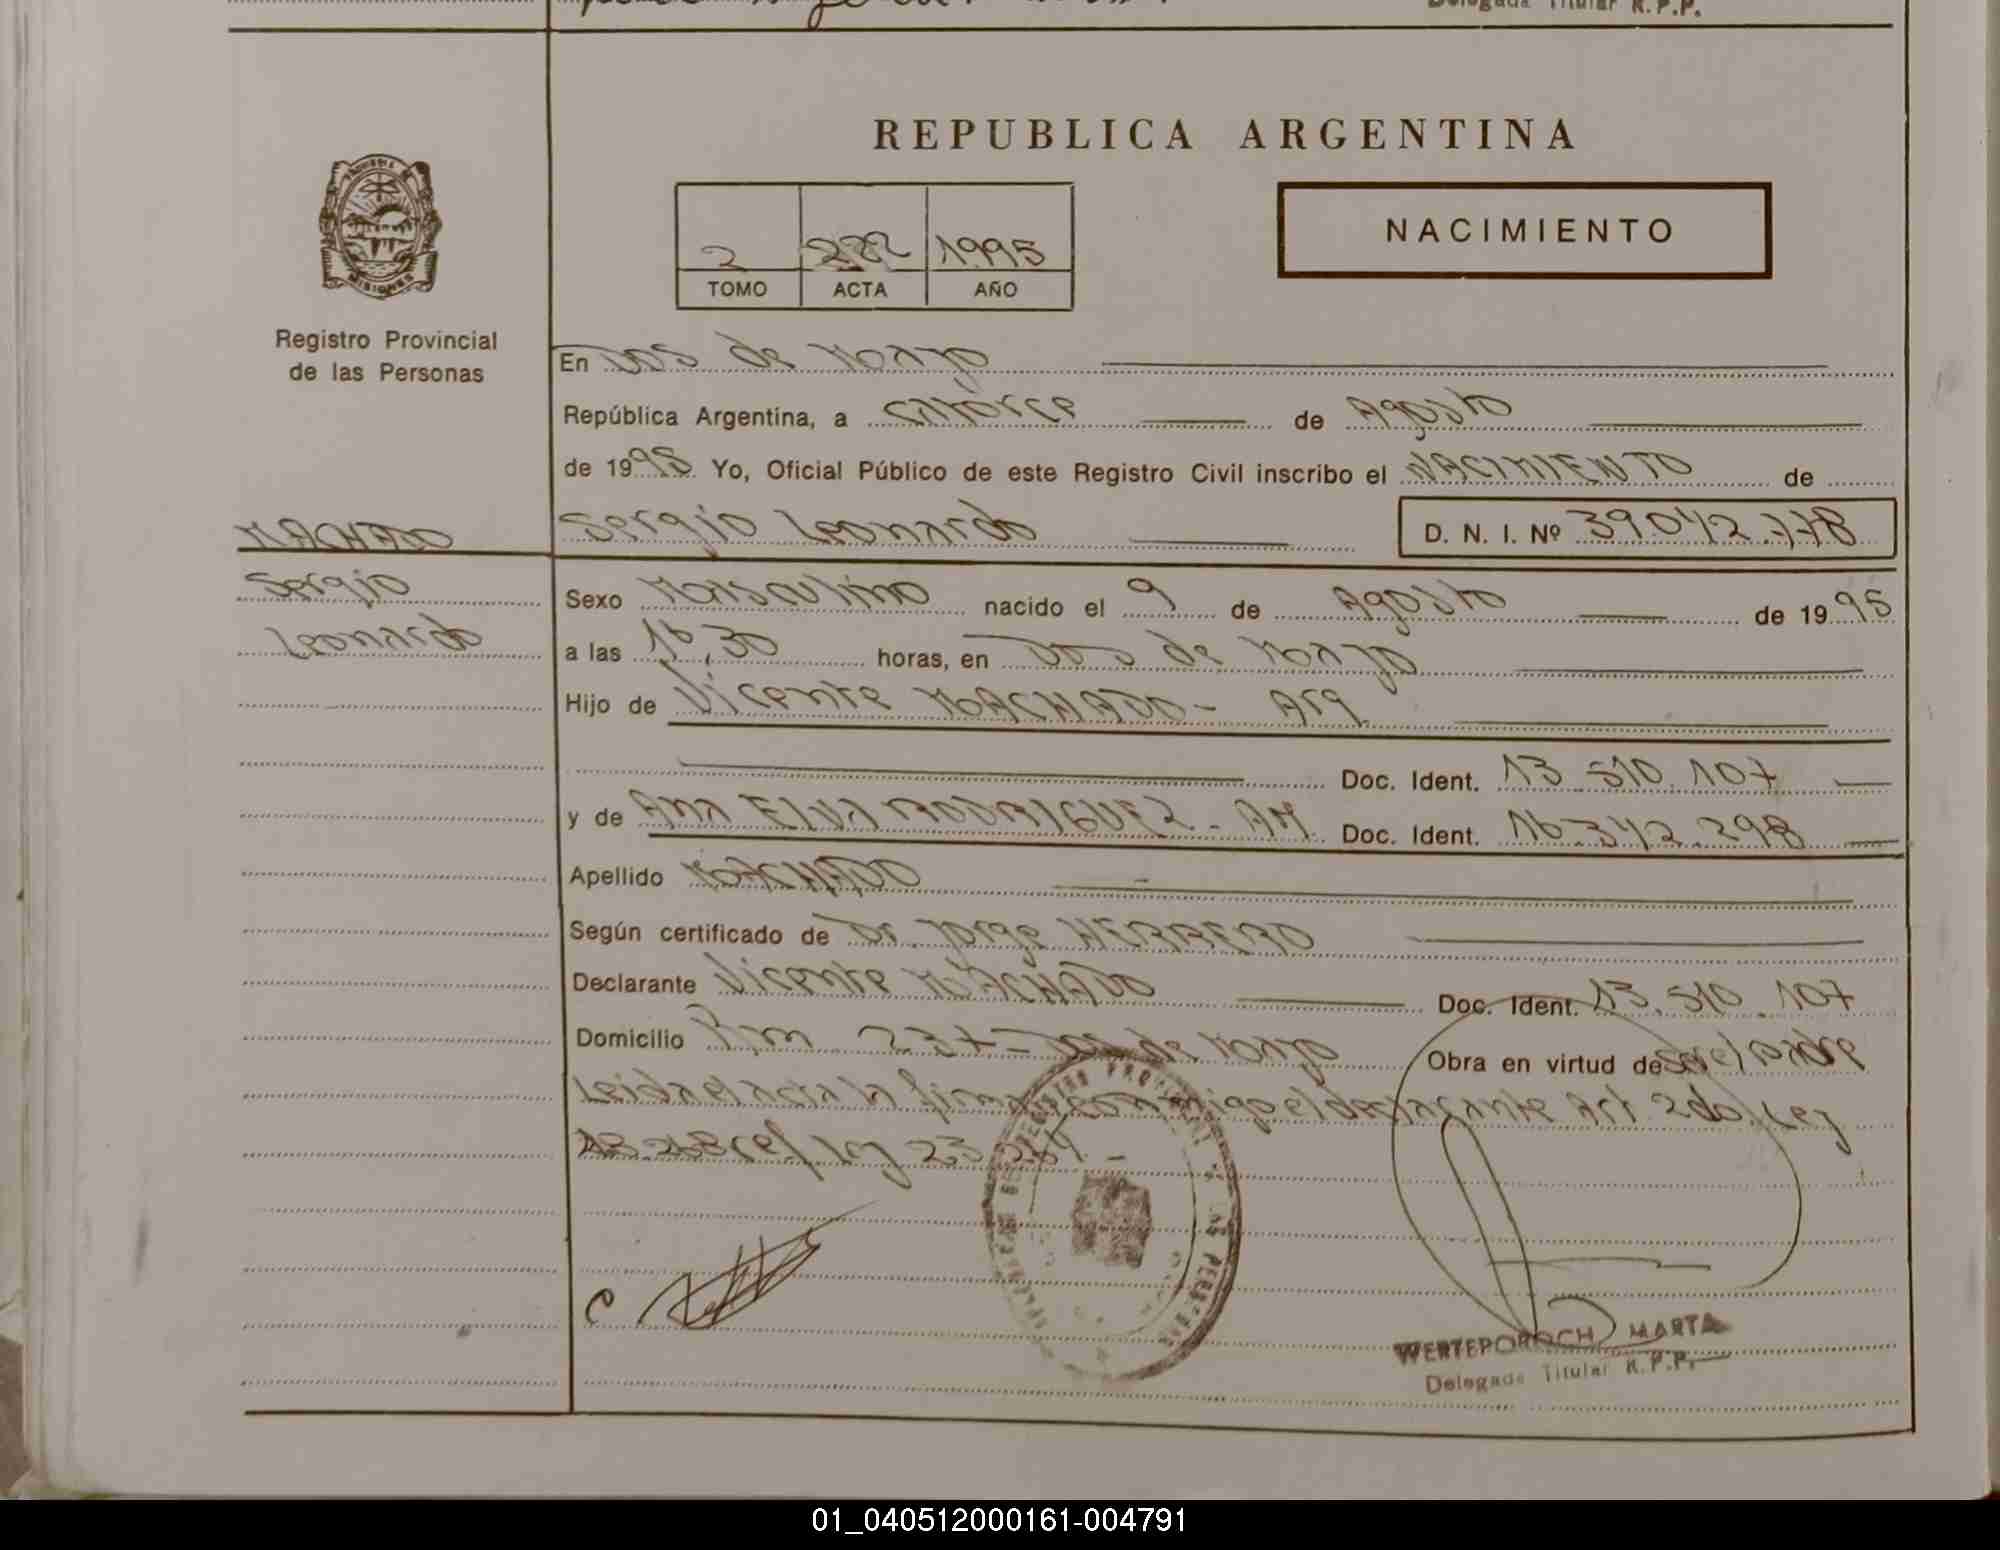 Delegada Titular R.P.P.
REPUBLICA ARGENTINA
MISIONES
2 222 1995
TOMO ACTA AÑO
NACIMIENTO
Registro Provincial
de las Personas
En Dos de Mayo
República Argentina, a catorce de Agosto
de 1995. Yo, Oficial Público de este Registro Civil inscribo el NACIMIENTO de
MACHADO Sergio Leonardo D. N. I. Nº 39.042.778
Sergio
Leonardo
Sexo Masculino nacido el 9 de Agosto de 1995
a las 16,30 horas, en Dos de Mayo
Hijo de Vicente MACHADO - Arg
Doc. Ident. 13.510.107
y de Ana ELVA RODRIGUEZ - Doc. Ident. 16.342.298
Apellido MACHADO
Según certificado de Dr. Jorge HERRERO
Declarante Vicente MACHADO Doc. Ident. 13.510.107
Domicilio 237 - Dos de Mayo Obra en virtud de Ser el padre
Leida el acta la firma conmigo el declarante Art 2do Ley
Ley 23.264 -
WERTEPOROCH MARTA
Delegada Titular R.P.P.
01_040512000161-004791